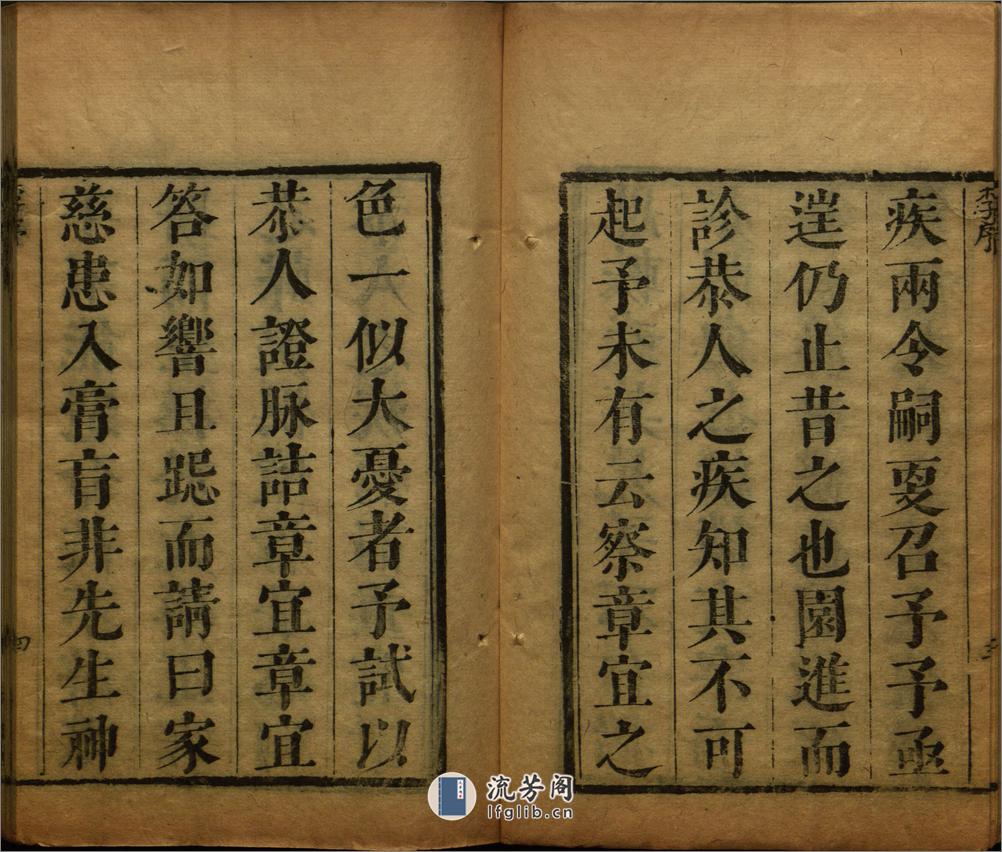 李序
疾兩令嗣亟召予予亟
迬仍止昔之也園進而
診恭人之疾知其不可
起予未有云察章宜之
色一似大憂者予試以
恭人證脉詰章宜章宜
答如響且跽而請曰家
慈患入膏肓非先生神
四
流芳阁
lfglib.cn